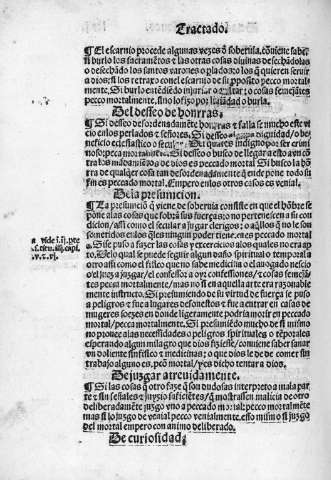 Tractado.
¶ El escarnio procede algunas vezes ð soberuia. cõuiene saber
si burlo los sacramẽtos z las otras cosas diuinas desechãdolas
o desechãdo los santos varones o plados: o los q̃ quieren seruir
a dios; si los retraxo con el escarnio de su ꝓposito
pecco mortalmente. Si burlo entẽdiẽdo injuriar o: cosas semejãtes
pecco mortalmente, sino lo fizo por liuiãdad o burla.
Del desseo de honrras.
¶ Si desseo desordenadamẽte honrras z falla se mucho este vi
cio en los perlados z señores. Si desseo alguna dignidad/o be
neficio ecclesiastico o seglar. Del qual es indigno por ser crimi
noso: pecca mortalmente. Si desseo o busco de llegar a esto
los mãdamiẽtos de dios es peccado mortal. Si busco la hõ
rra de qualquier cosa tan desordenadamente q̃ ende pone todo su
fin es peccado mortal. Empero en los otros casos es venial.
De la presumcion.
¶ La presumciõ q̃ viene de soberuia consiste en que el hõbre se
pone a las cosas que sobrã sus fuerças: o no pertenescen a su con
dicion/assi como el secular a juzgar clerigos: o a aq̃llos q̃ no le son
sometidos en los q̃les ningun poder tiene. ca es peccado mortal
Si se puso a fazer las cosas y exercicios a los quales no era ap
to. De lo qual se puede seguir algun daño spiritual o temporal a
otro assi como el fisico que no sabe medicina o el auogado nescio
o el juez a juzgar/el confessor a oyr confessiones/z cosas semejã
tes pecca mortalmente/mas no si en aquella arte era razonable
mente instructo. Si presumiendo de su virtud de fuerça se puso
a peligros z fue a lugares desonestos z fue a entrar en casas de
mugeres soezes en donde ligeramente podria morir en peccado
mortal/pecca mortalmente. Si presumiẽdo mucho de si mismo
no prouee a las necessidades o peligros spirituales o tẽporales
esperando algun milagro que dios fiziesse/conuiene saber sanar
vn doliente sin fisico z medicinas; o que dios le de de comer sin
trabajo alguno es. pecca mortal/y es dicho tentar a dios.
De juzgar atreuidamente.
¶ Si las cosas q̃ otro faze q̃ son dudosas interpreto a mala par
te z sin señales z juyzio suficiẽtes/q̃ mostrassen malicia de otro
deliberadamẽte juzgo vno a peccado mortal: pecco mortalmẽte
mas si lo juzgo de venial pecco venialmente. esso mismo si juzgo
del mortal empero con animo deliberado.
De curiosidad
a vide